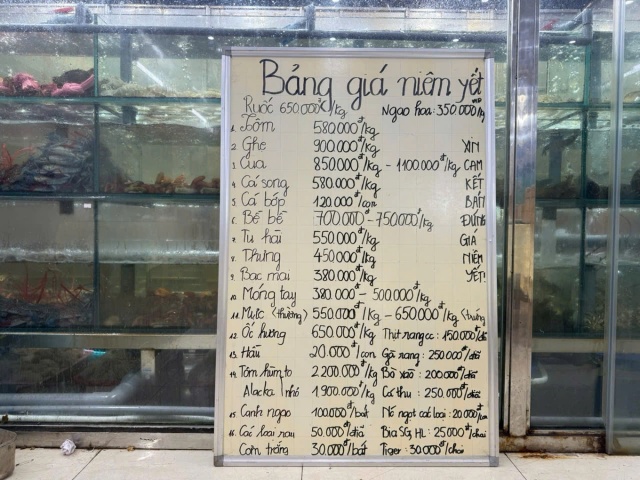 Bảng giá niêm yết
Ruốc 650.000đ/kg Ngao hoa: 350.000/kg
1. Tôm 580.000đ/kg
2. Ghẹ 900.000đ/kg XIN
3. Cua 850.000đ/kg - 1100.000đ/kg CAM
4. Cá song 580.000đ/kg KẾT
5. Cá bóp 120.000đ/con BÁN
6. Bề bề 700.000 - 750.000đ/kg ĐÚNG
7. Tu hài 550.000đ/kg GIÁ
8. Thưng 450.000đ/kg NIÊM
9. Bạc mai 380.000đ/kg YẾT!
10. Móng tay 380.000 - 500.000đ/kg
11. Mực (thường) 550.000đ/kg - 650.000đ/kg
12. Ốc hương 650.000đ/kg Thịt rang cc: 150.000đ/đĩa
13. Hàu 20.000đ/con Gà rang: 250.000đ/đĩa
14. Tôm hùm, to 2.200.000đ/kg Bò xào: 200.000đ/đĩa
Alacka nhỏ 1.900.000đ/kg Cá thu: 250.000đ/đĩa
15. Canh ngao 100.000đ/bát Nc ngọt các loại: 20.000đ/lon
16. Các loại rau 50.000đ/đĩa Bia SG, HL: 25.000đ/chai
Cơm trắng 30.000đ/bát Tiger: 30.000đ/chai